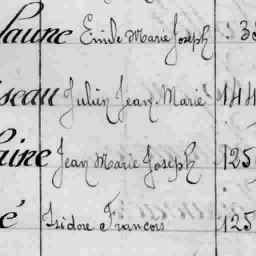 laune Emile Marie Joseph : 38
seau Julien Jean Marie 144
aine Jean Marie Joseph 125
é Isidore François 125